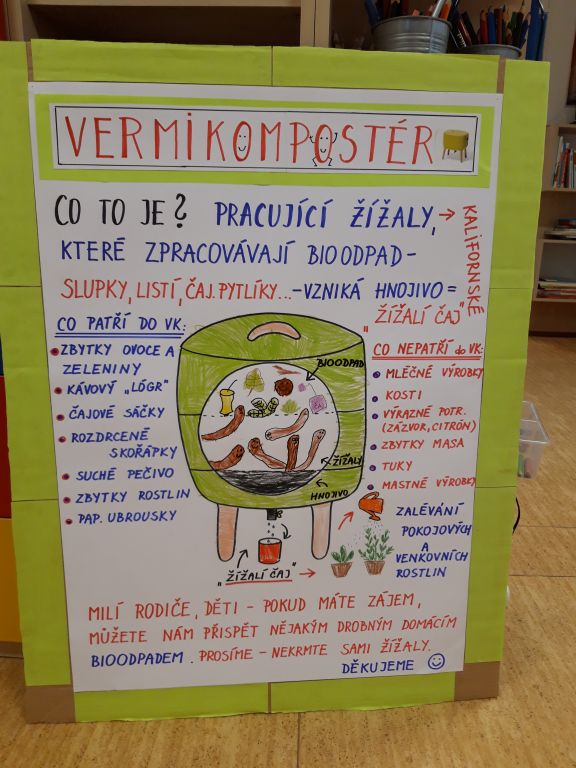 VERMIKOMPOSTÉR
CO TO JE? PRACUJÍCÍ ŽÍŽALY, → KALIFORNSKÉ
KTERÉ ZPRACOVÁVAJÍ BIOODPAD -
SLUPKY, LISTÍ, ČAJ. PYTLÍKY... - VZNIKÁ HNOJIVO =
„ŽÍŽALÍ ČAJ"
CO PATŘÍ DO VK:
ZBYTKY OVOCE A
ZELENINY
KÁVOVÝ „LÓGR"
ČAJOVÉ SÁČKY
ROZDRCENÉ
SKOŘÁPKY
SUCHÉ PEČIVO
ZBYTKY ROSTLIN
PAP. UBROUSKY
BIOODPAD
ŽÍŽALY
HNOJIVO
„ŽÍŽALÍ ČAJ" →
CO NEPATŘÍ do VK:
MLÉČNÉ VÝROBKY
KOSTI
VÝRAZNÉ POTR.
(ZÁZVOR, CITRÓN)
ZBYTKY MASA
TUKY
MASTNÉ VÝROBKY
ZALÉVÁNÍ
POKOJOVÝCH
A
VENKOVNÍCH
ROSTLIN
MILÍ RODIČE, DĚTI - POKUD MÁTE ZÁJEM,
MŮŽETE NÁM PŘISPĚT NĚJAKÝM DROBNÝM DOMÁCÍM
BIOODPADEM. PROSÍME - NEKRMTE SAMI ŽÍŽALY.
DĚKUJEME ☺